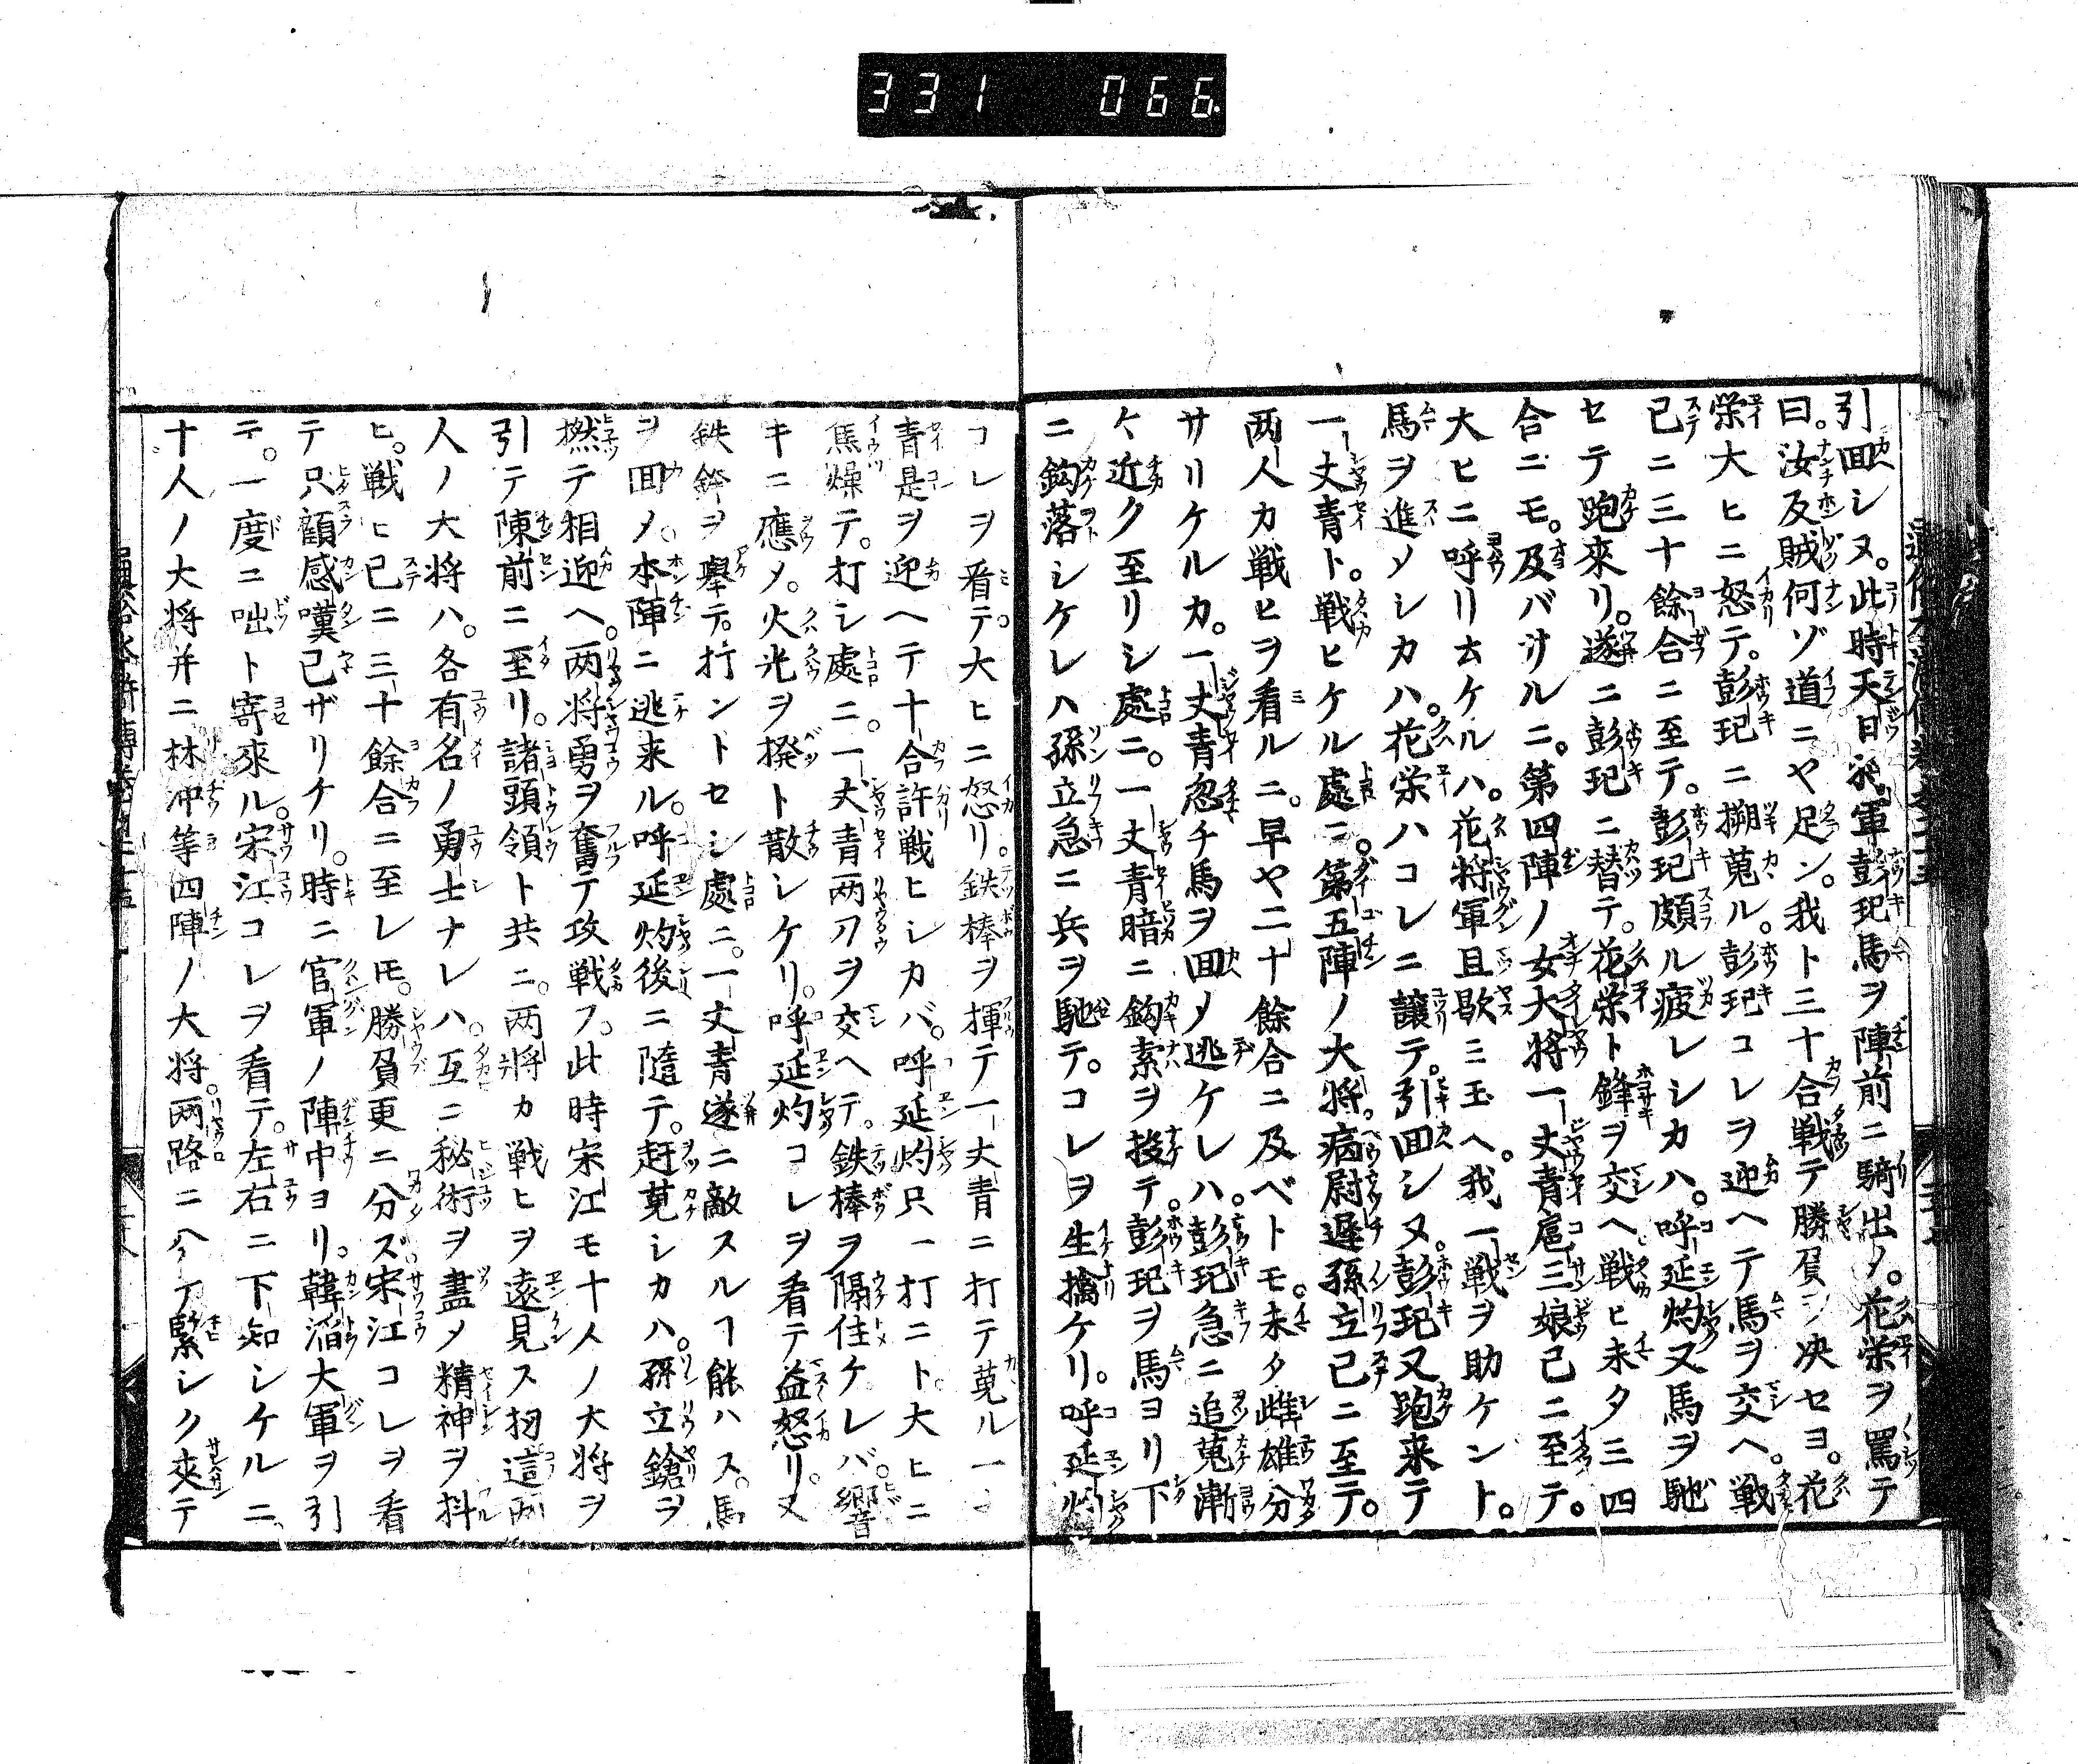 331 066.
引回シヌ。此時天目将軍彭玘馬ヲ陣前ニ騎出〆。花栄ヲ罵テ
曰。汝反賊何ゾ道ニヤ足ン。我ト三十合戦テ勝負ヲ决セヨ。花
栄大ヒニ怒テ。彭玘ニ搠蒐ル。彭玘コレヲ迎ヘテ馬ヲ交ヘ。戦
已ニ三十餘合ニ至テ。彭玘頗ル疲レシカハ。呼延灼又馬ヲ馳
セテ跑來リ。遂ニ彭玘ニ替テ。花栄ト鋒ヲ交ヘ戦ヒ未タ三四
合ニモ。及バザルニ。第四陣ノ女大将一丈青扈三娘已ニ至テ。
大ヒニ呼リ云ケルハ。花将軍且歇ミ玉ヘ。我一戦ヲ助ケント。
馬ヲ進メシカハ。花栄ハコレニ譲テ。引回シヌ。彭玘又跑来テ
一丈青ト。戦ヒケル處ニ。第五陣ノ大将。病尉遲孫立已ニ至テ。
两人カ戦ヒヲ看ルニ。早ヤ二十餘合ニ及ベトモ。未タ雌雄分
サリケルカ。一丈青忽チ馬ヲ回〆逃ケレハ。彭玘急ニ追蒐漸
ク近ク至リシ處ニ。一丈青暗ニ鈎索ヲ投テ。彭玘ヲ馬ヨリ下
ニ鈎落シケレハ孫立急ニ兵ヲ馳テ。コレヲ生擒ケリ。呼延灼
コレヲ看テ。大ヒニ怒リ。鉄棒ヲ揮テ一丈青ニ打テ蒐ル一丈
青是ヲ迎ヘテ十合許戦ヒシカバ。呼延灼只一打ニト。大ヒニ
焦燥テ。打シ處ニ。一丈青两刀ヲ交ヘテ。鉄棒ヲ隔住ケレバ。響
キニ應〆。火光ヲ撥ト散シケリ。呼延灼コレヲ看テ益怒リ。又
鉄鉾ヲ擧テ。打ントセシ處ニ。一丈青遂ニ敵スルヿ能ハス。馬
ヲ回〆。本陣ニ逃来ル。呼延灼後ニ隨テ。赶蒐シカハ。孫立鎗ヲ
撚テ相迎ヘ。两将勇ヲ奮テ攻戦フ。此時宋江モ十人ノ大将ヲ
引テ陳前ニ至リ。諸頭領ト共ニ。两將カ戦ヒヲ遠見ス扨這两
人ノ大将ハ。各有名ノ勇士ナレハ。互ニ秘術ヲ盡〆精神ヲ抖
ヒ。戦ヒ已ニ三十餘合ニ至レ𪜈。勝負更ニ分ズ。宋江コレヲ看
テ只顧感嘆已ザリケリ。時ニ官軍ノ陣中ヨリ。韓滔大軍ヲ引
テ。一度ニ咄ト寄來ル。宋江コレヲ看テ。左右ニ下知シケルニ
十人ノ大将并ニ林冲等四陣ノ大将。两路ニ分テ緊シク夾テ